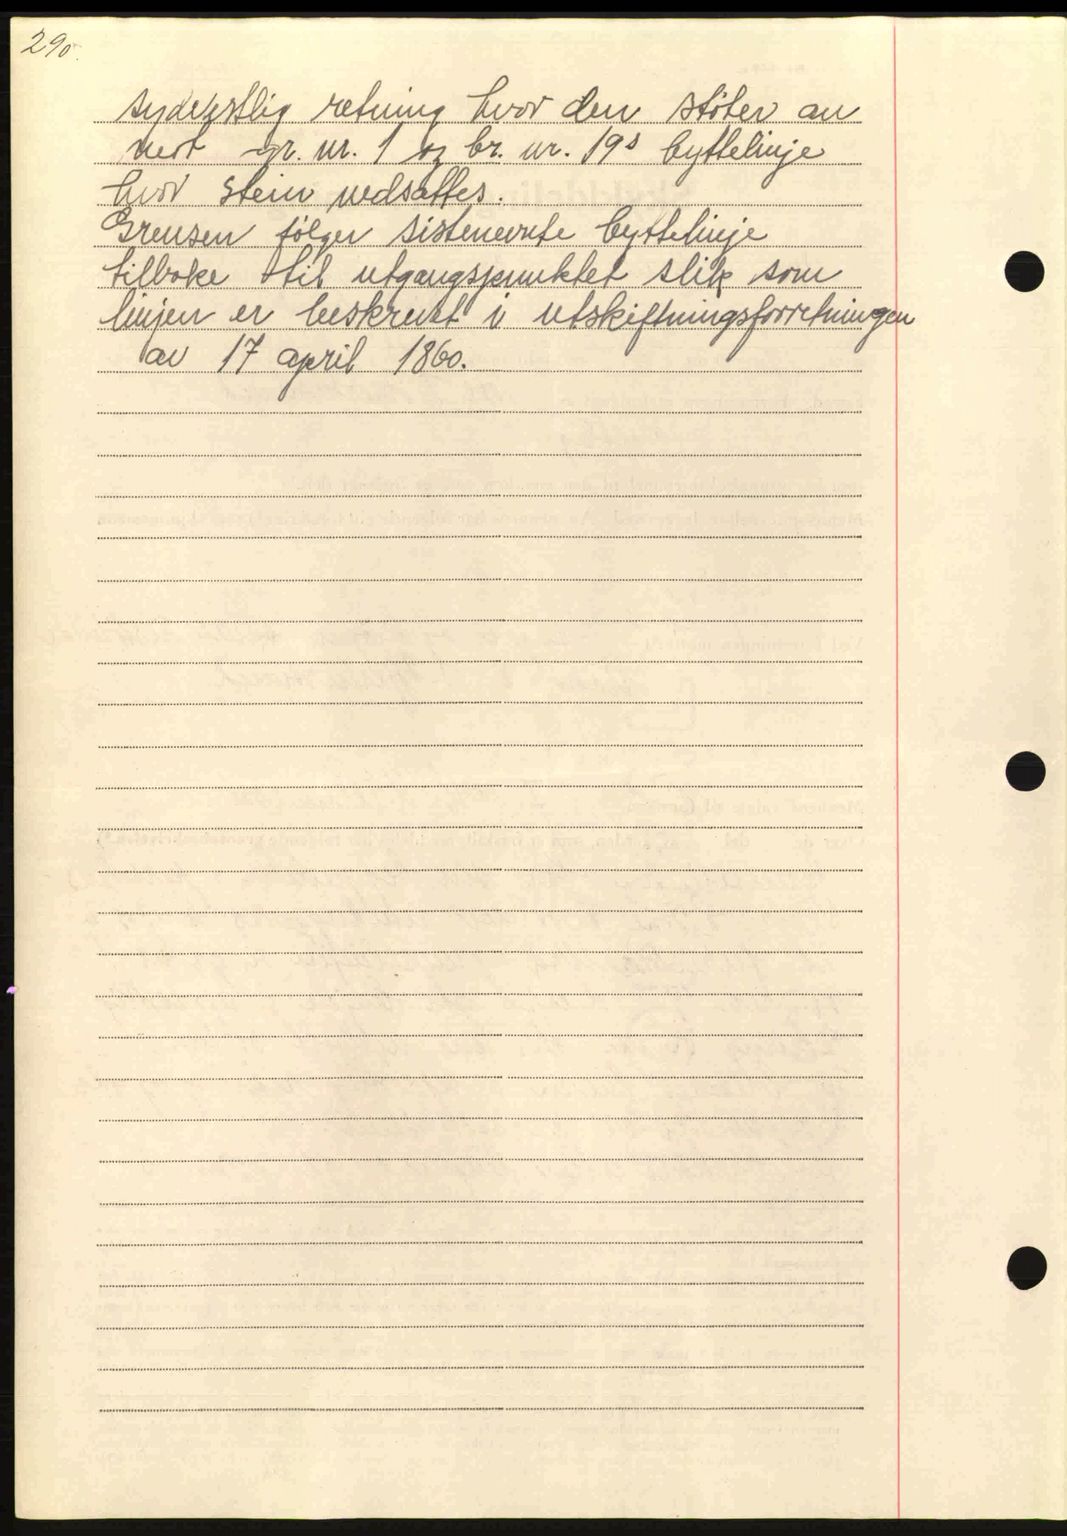 290.
sydvestlig retning hvor den støter an
mot gr. nr. 1 og br. nr. 19s byttelinje
hvor stein nedsattes.
Grensen følger sistnevnte byttelinje
tilbake til utgangspunktet slik som
linjen er beskrevet i utskiftningsforretningen
av 17 april 1860.